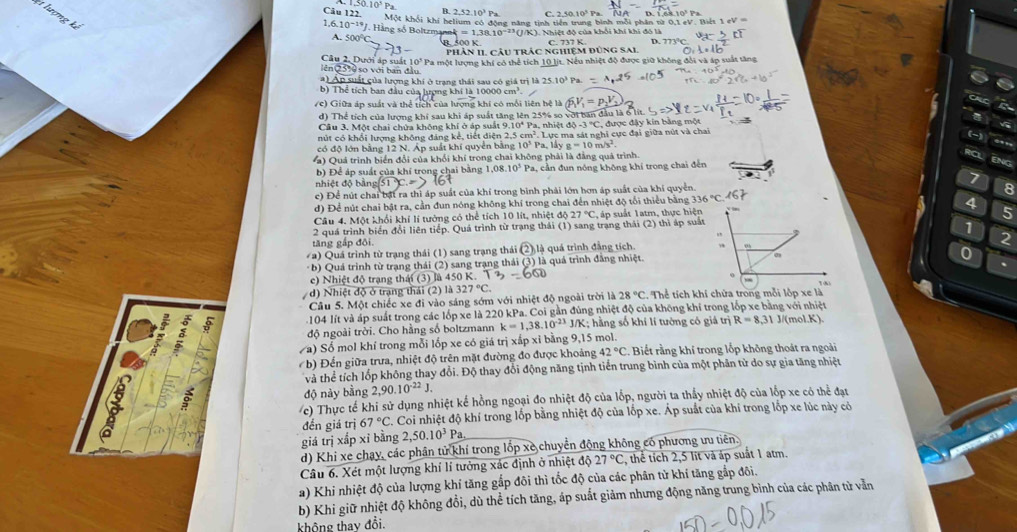 A. 1,50.10⁵ Pa. B. 2,52.10⁵ Pa. C. 2,50.10⁵ Pa. D. 1,68.10⁵ Pa.
Câu 122. Một khối khí helium có động năng tịnh tiến trung bình mỗi phân tử 0,1 eV. Biết 1 eV =
1,6.10⁻¹⁹J. Hằng số Boltzmann k = 1,38.10⁻²³ (J/K). Nhiệt độ của khối khí khi đó là
A. 500°C B. 500 K. C. 737 K. D. 773°C
PHẦN II. CÂU TRẮC NGHIỆM ĐÚNG SAI.
Câu 2. Dưới áp suất 10⁵ Pa một lượng khí có thể tích 10 lít. Nếu nhiệt độ được giữ không đổi và áp suất tăng
lên 25% so với ban đầu.
a) Áp suất của lượng khí ở trạng thái sau có giá trị là 25.10³ Pa.
b) Thể tích ban đầu của lượng khí là 10000 cm³.
c) Giữa áp suất và thể tích của lượng khí có mối liên hệ là p₁V₁ = p₂V₂
d) Thể tích của lượng khí sau khi áp suất tăng lên 25% so với ban đầu là 6 lít.
Câu 3. Một chai chứa không khí ở áp suất 9.10⁴ Pa, nhiệt độ -3 °C, được đậy kín bằng một
nút có khối lượng không đáng kể, tiết diện 2,5 cm². Lực ma sát nghỉ cực đại giữa nút và chai
có độ lớn bằng 12 N. Áp suất khí quyển bằng 10⁵ Pa, lấy g = 10 m/s².
a) Quá trình biến đổi của khối khí trong chai không phải là đẳng quá trình.
b) Để áp suất của khí trong chai bằng 1,08.10⁵ Pa, cần đun nóng không khí trong chai đến
nhiệt độ bằng 51 °C.
c) Để nút chai bật ra thì áp suất của khí trong bình phải lớn hơn áp suất của khí quyển.
d) Để nút chai bật ra, cần đun nóng không khí trong chai đến nhiệt độ tối thiểu bằng 336 °C
Câu 4. Một khối khí lí tưởng có thể tích 10 lít, nhiệt độ 27 °C, áp suất 1atm, thực hiện
2 quá trình biến đổi liên tiếp. Quá trình từ trạng thái (1) sang trạng thái (2) thì áp suất
tăng gấp đôi.
a) Quá trình từ trạng thái (1) sang trạng thái (2) là quá trình đẳng tích.
b) Quá trình từ trạng thái (2) sang trạng thái (3) là quá trình đẳng nhiệt.
c) Nhiệt độ trạng thái (3) là 450 K. T3 = 600
d) Nhiệt độ ở trạng thái (2) là 327 °C.
Câu 5. Một chiếc xe đi vào sáng sớm với nhiệt độ ngoài trời là 28 °C. Thể tích khí chứa trong mỗi lốp xe là
104 lít và áp suất trong các lốp xe là 220 kPa. Coi gần đúng nhiệt độ của không khí trong lốp xe bằng với nhiệt
độ ngoài trời. Cho hằng số boltzmann k = 1,38.10⁻²³ J/K; hằng số khí lí tưởng có giá trị R = 8,31 J/(mol.K).
a) Số mol khí trong mỗi lốp xe có giá trị xấp xỉ bằng 9,15 mol.
b) Đến giữa trưa, nhiệt độ trên mặt đường đo được khoảng 42 °C. Biết rằng khí trong lốp không thoát ra ngoài
và thể tích lốp không thay đổi. Độ thay đổi động năng tịnh tiến trung bình của một phân tử do sự gia tăng nhiệt
độ này bằng 2,90.10⁻²² J.
c) Thực tế khi sử dụng nhiệt kế hồng ngoại đo nhiệt độ của lốp, người ta thấy nhiệt độ của lốp xe có thể đạt
đến giá trị 67 °C. Coi nhiệt độ khí trong lốp bằng nhiệt độ của lốp xe. Áp suất của khí trong lốp xe lúc này có
giá trị xấp xỉ bằng 2,50.10³ Pa.
d) Khi xe chạy, các phân tử khí trong lốp xe chuyển động không có phương ưu tiên.
Câu 6. Xét một lượng khí lí tưởng xác định ở nhiệt độ 27 °C, thể tích 2,5 lít và áp suất 1 atm.
a) Khi nhiệt độ của lượng khí tăng gấp đôi thì tốc độ của các phân tử khí tăng gấp đôi.
b) Khi giữ nhiệt độ không đổi, dù thể tích tăng, áp suất giảm nhưng động năng trung bình của các phân tử vẫn
không thay đổi.
Lớp:
Môn:
Họ và tên:
niên khóa:
Capybara
CALC
(−)
RCL ENG
7 8
4 5
1 2
0 .